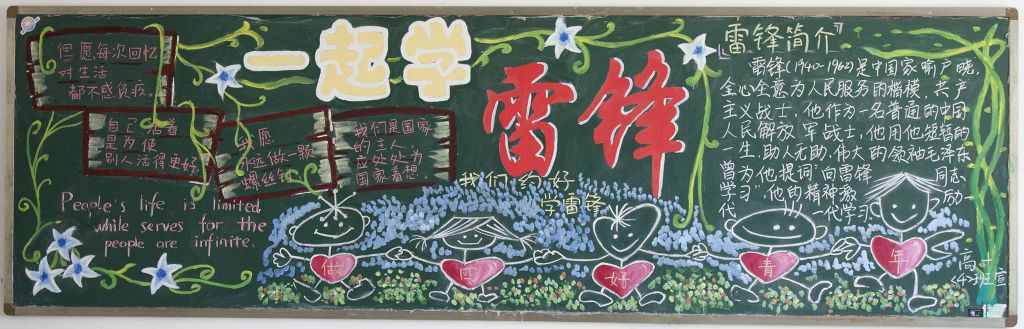 但愿每次回忆
对生活
都不感负疚。
自己活着
是为使
别人活得更好
我愿
永远做一颗
螺丝钉
我们是国家
的主人
应处处为
国家着想。
People's life is limited
while serves for the
people are infinite.
一起学
雷锋
我们约好
学雷锋
做 四 好 青 年
「雷锋简介」
雷锋(1940-1962)是中国家喻户晓,
全心全意为人民服务的楷模,共产
主义战士,他作为一名普通的中国
人民解放军战士,他用他短暂的
一生,助人无助,伟大的领袖毛泽东
曾为他提词“向雷锋同志
学习”他的精神激励一
代一代学习
高一
(4)班宣